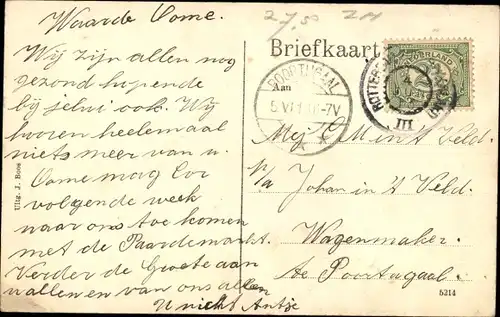 Waarde Oome.
Wij zijn allen nog
gezond hopende
bij jelui ook. Wij
hooren heelemaal
niets meer van u.
Oome mag Cor
volgende week
naar ons toe komen
met de Paardemarkt.
Verder de Groete aan
u allen en van ons allen
U nicht Antje
Uitg. J. Boos
27,50
Briefkaart
Aan
POORTUGAAL
5 VI 1
-7V
ROTTERD
III
NEDERLAND
Mej C M in 't Veld.
p/a Johan in 't Veld.
Wagenmaker.
te Poortugaal.
5214